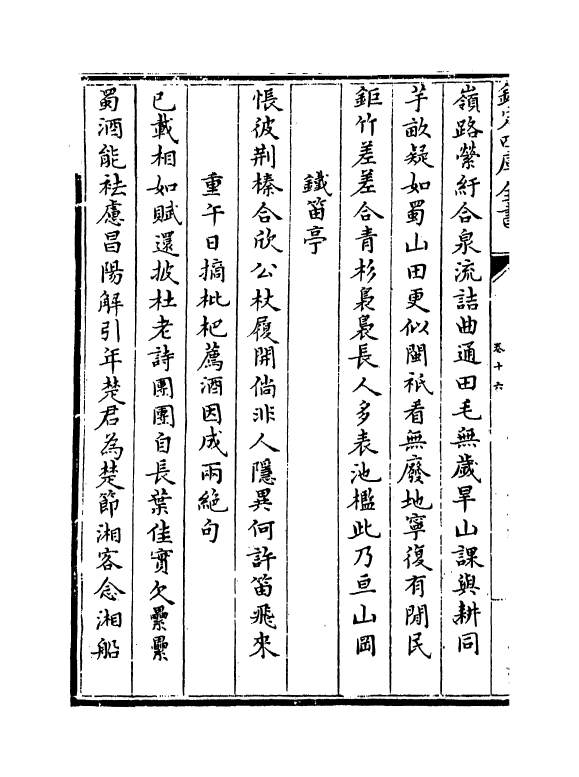 欽定四庫全書
卷十六
嶺路縈紆合泉流詰曲通田毛無歲旱山課與耕同
芋畝疑如蜀山田更似閩祇看無廢地寧復有閒民
鉅竹差差合青杉裊裊長人多表池檻此乃亘山岡
鐵笛亭
悵彼荆榛合欣公杖屨開倘非人隱異何許笛飛來
重午日摘枇杷薦酒因成兩絶句
已載相如賦還披杜老詩團團自長葉佳實欠纍纍
蜀酒能祛慮昌陽解引年楚君為楚節湘客念湘船